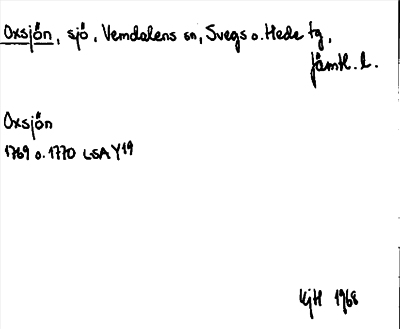 Oxsjön, sjö, Vemdalens sn, Svegs o. Hede tg,
Jämtl. l.
Oxsjön
1769 o. 1770 LSA Y19
KjH 1968